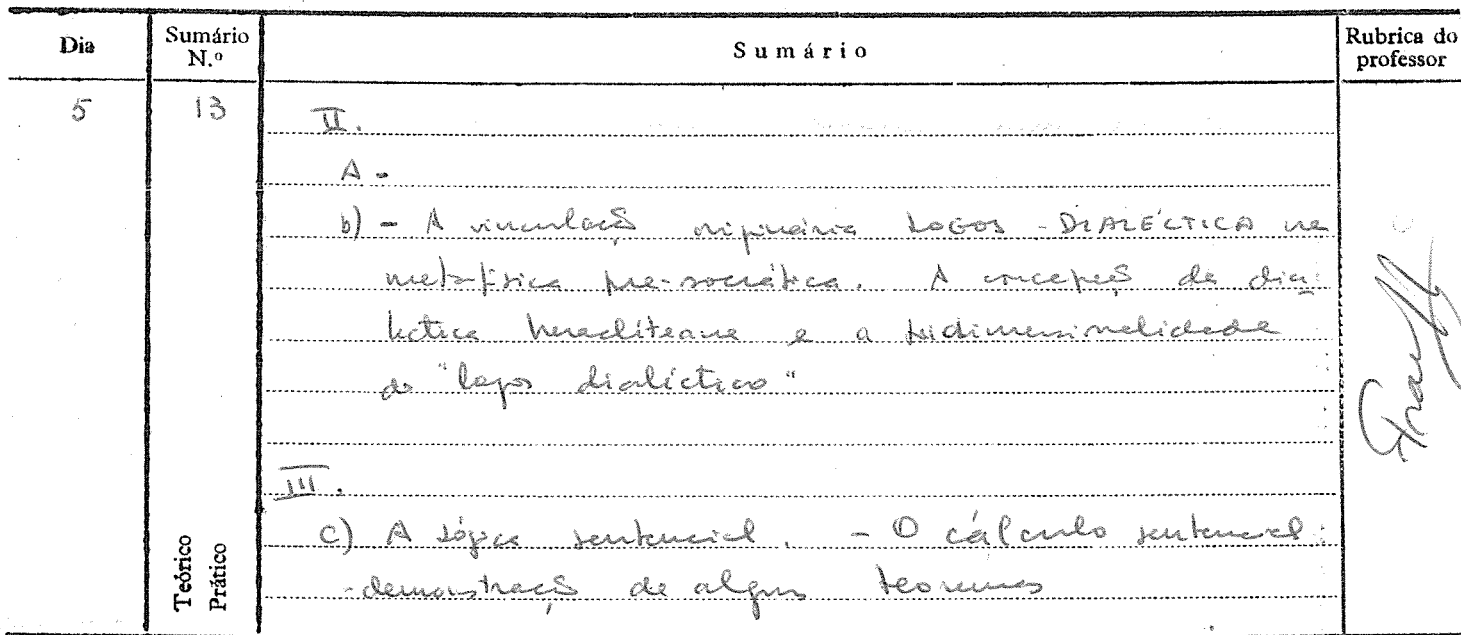 Dia
Sumário N.º
Sumário
Rubrica do professor
5
13
II.
A -
b) - A vinculação originária LOGOS - DIALÉCTICA na
metafísica pre-socrática. A concepção de dia-
lectica heracliteana e a tridimensionalidade
do "logos dialéctico"
III.
c) A lógica sentencial. - O cálculo sentencial:
- demonstração de alguns teoremas
Teórico
Prático